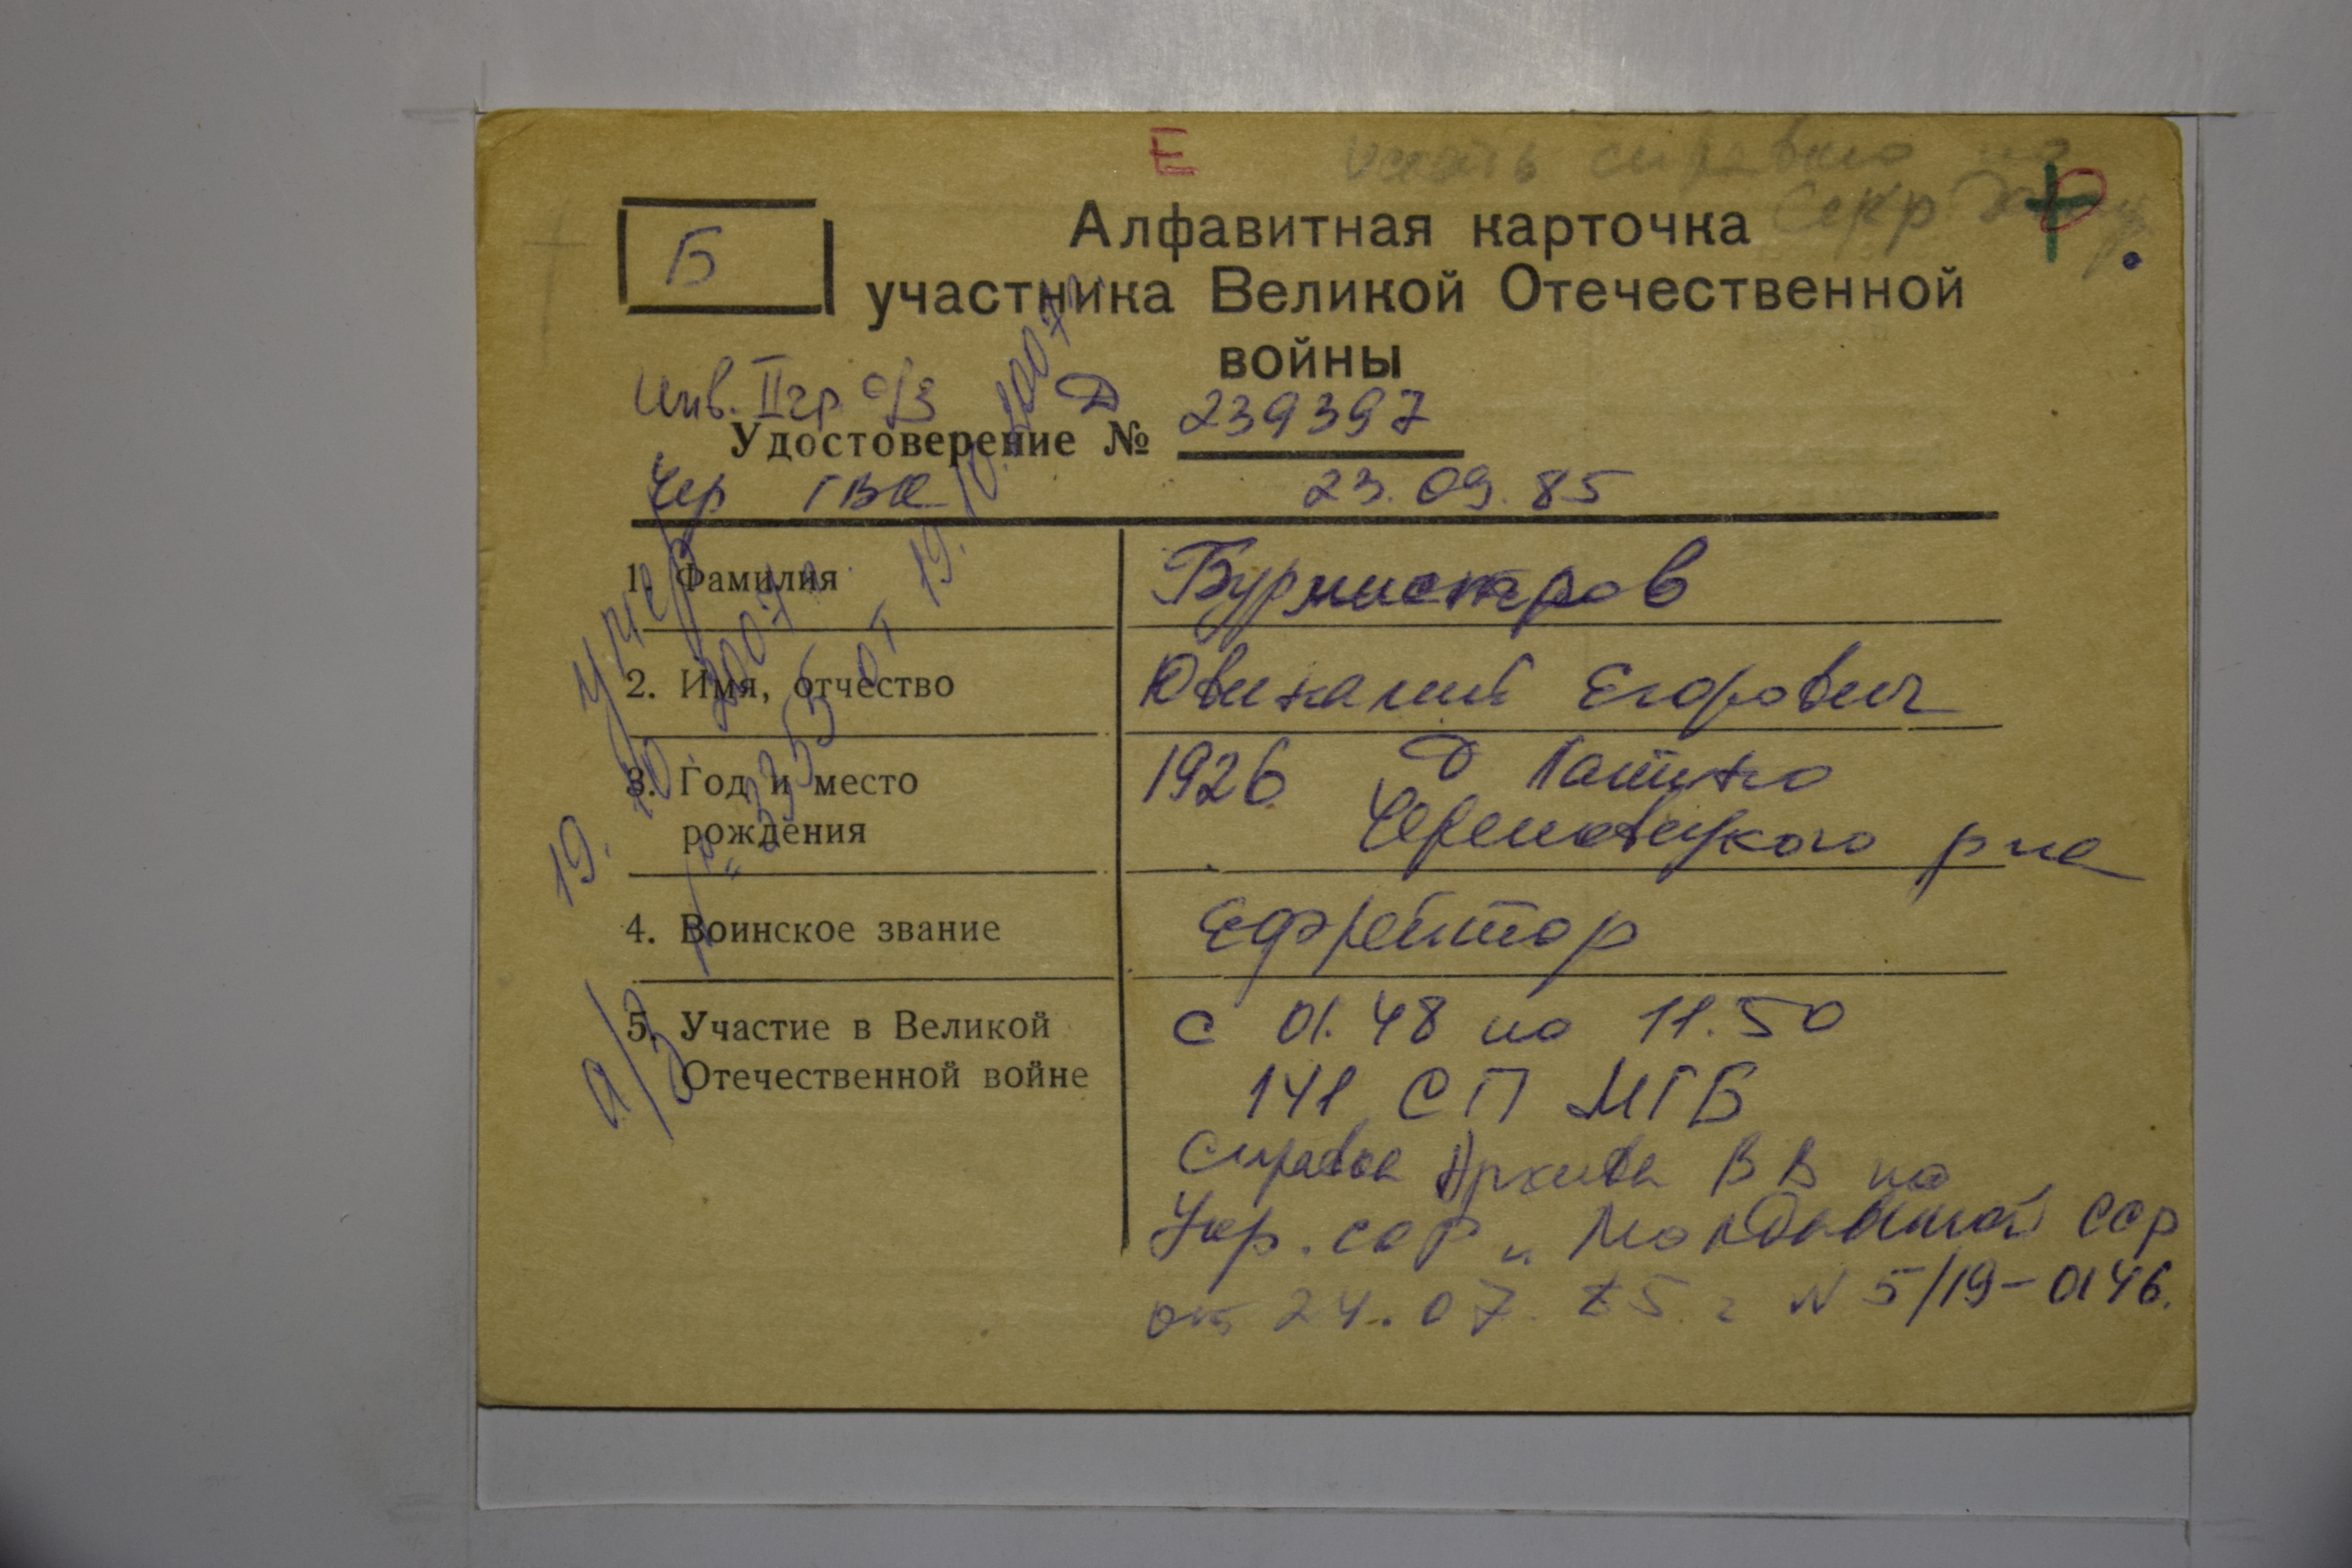 Е
искать справка по
Б
Алфавитная карточка
секр
участника Великой Отечественной
войны
Инв. II гр о/з
Удостоверение № Д 239397
Чер ГВК 23.09.85
1. Фамилия Бурмистров
2. Имя, отчество Ювиналий Егорович
3. Год и место 1926 д
рождения Череповецкого р-на
4. Воинское звание Ефрейтор
5. Участие в Великой с 01.48 по 11.50
Отечественной войне 141 СП МГБ
Справка Архива ВВ по
Укр. ССР и Молдавской ССР
от 24.07.85 г N 5/19-0146.
умер
19.10.2007 г.
а/з № 3353 от 19.10.2007 г.